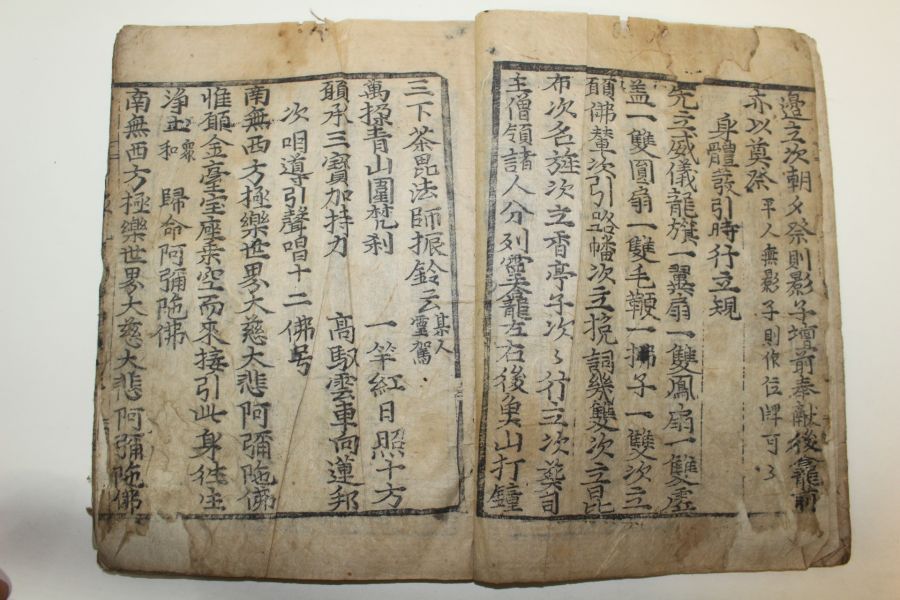 邉立次朝夕祭則影子壇前奉獻後龕前
亦以奠祭 平人無影子則作位牌可了
身體發引時行立規
先立威儀龍旗一翼扇一雙鳳扇一雙
盖一雙圓扇一雙毛鞭一拂子一雙次立
佛輦次引路幡次立挽詞幾雙次立
布次名旌次立香亭子次〻行立次
主僧領諸人分列靈龕左右後魚山打鍾
三下茶毘法師振鈴云 某人靈駕
萬操青山圍梵刹 一竿紅日照十方
願承三寶加持力 高馭雲車向蓮邦
次唱導引聲唱十二佛号
南無西方極樂世界大慈大悲阿彌陁佛
惟願金臺宝座乘空而來接引此身往生
浄土 衆和 歸命阿彌陁佛
南無西方極樂世界大慈大悲阿彌陁佛